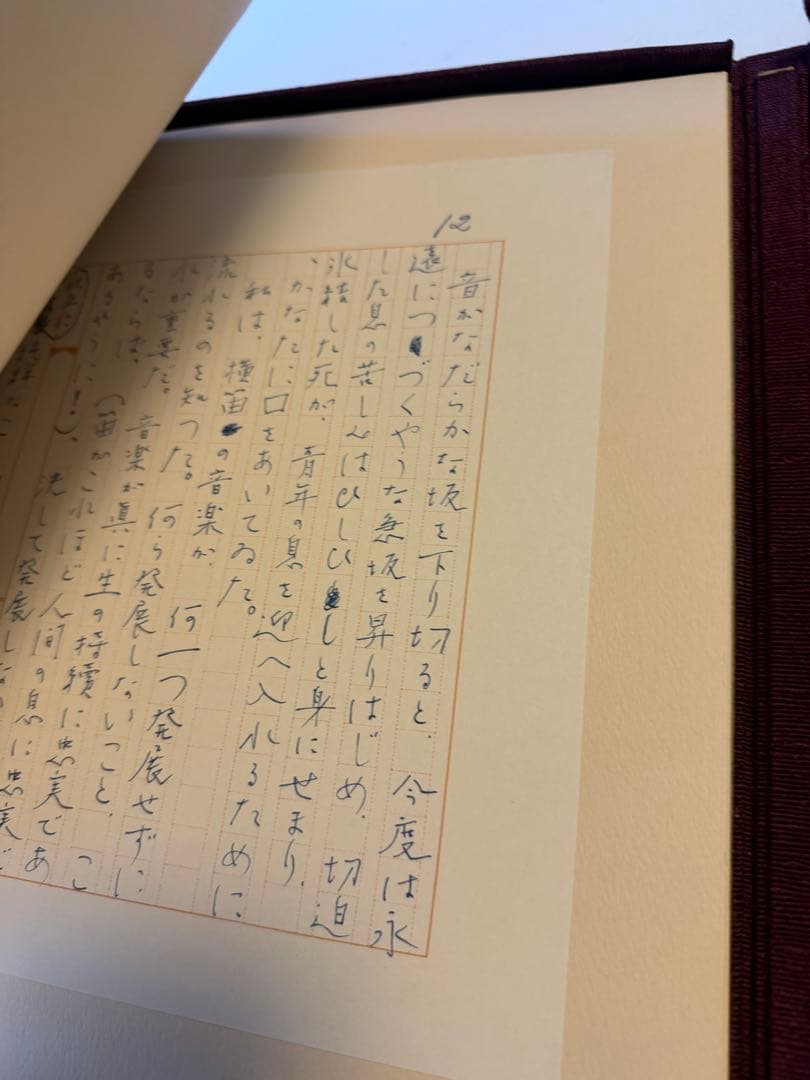 12
音がなだらかな坂を下り切ると、今度は永
遠につづくやうな急坂を昇りはじめ、切迫
した息の苦しみはひしひしと身にせまり、
氷結した死が、青年の息を迎へ入れるために
、かなたに口をあいてゐた。
私は、横笛の音楽が、何一つ発展せずに
流れるのを知つた。何ら発展しないこと、こ
れが重要だ。音楽が真に生の持続に忠実であ
るならば、(笛がこれほど人間の息に忠実で
あるやうに!)、決して発展しな